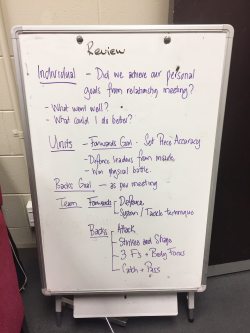 Review
Individual - Did we achieve our personal
goals from relationship meeting?
- What went well?
- What could I do better?
Units - Forwards Goal - Set Piece Accuracy
- Defence leaders from inside
- Won physical battle.
Backs Goal - as per meeting
Team Forwards - Defence
System / Tackle technique
Backs - Attack
- Strikes and Shape
- 3 Fs + Body Focus
- Catch + Pass